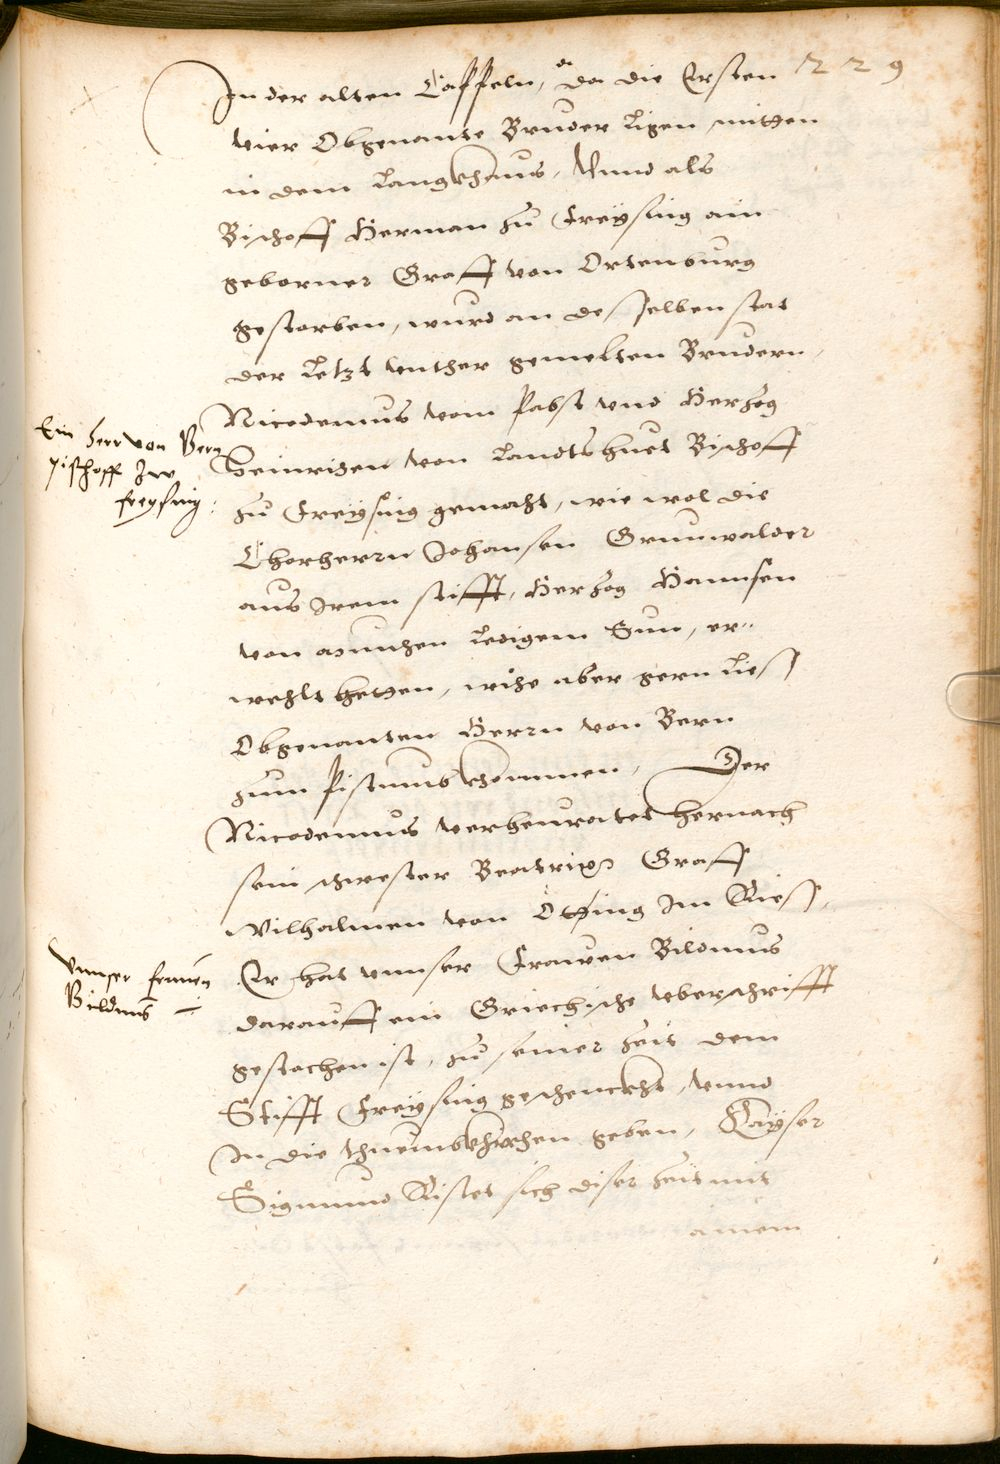 229
In der alten Caffeln, da die Ersten
vier Obgenante Brueder ligen mitten
in dem langkhaus, Vnnd als
Bischoff Herman zu Freÿsing ain
geborner Graff von Ortenburg
gestorben, wurd an desselben stat
der letzt vnther gemelten Brudern,
Nicodemus vom Pabst vnd Herzog
Heinrichen von Landtshuet Bischoff
zu Freÿsing gemacht, wie wol die
Chorherrn Johansen Grunwalder
aus Irem stifft, Herzog Hannsen
von Munchen ledigem Sun, er-
wehlt hetten, aber gern liess
Obgenanten Herrn von Bern
zum Pistumb khommen, Der
Nicodemus verheuratet hernach
sein schwester Beatrix Graff
Wilhalmen von Ötting Im Riess,
Er hat vnnser Frawen Bildnus
darauff ein Griechische vberschrifft
gestochen ist, zu seiner zeit dem
Stifft Freÿsing geschenckht, vnnd
In die thuembkhirchen geben, Kaÿser
Sigmund Ristet sich diser zeit mit
ainem
Ein herr von Bern
pischoff zw
freysing:
Vnnser frauen
Bildnus